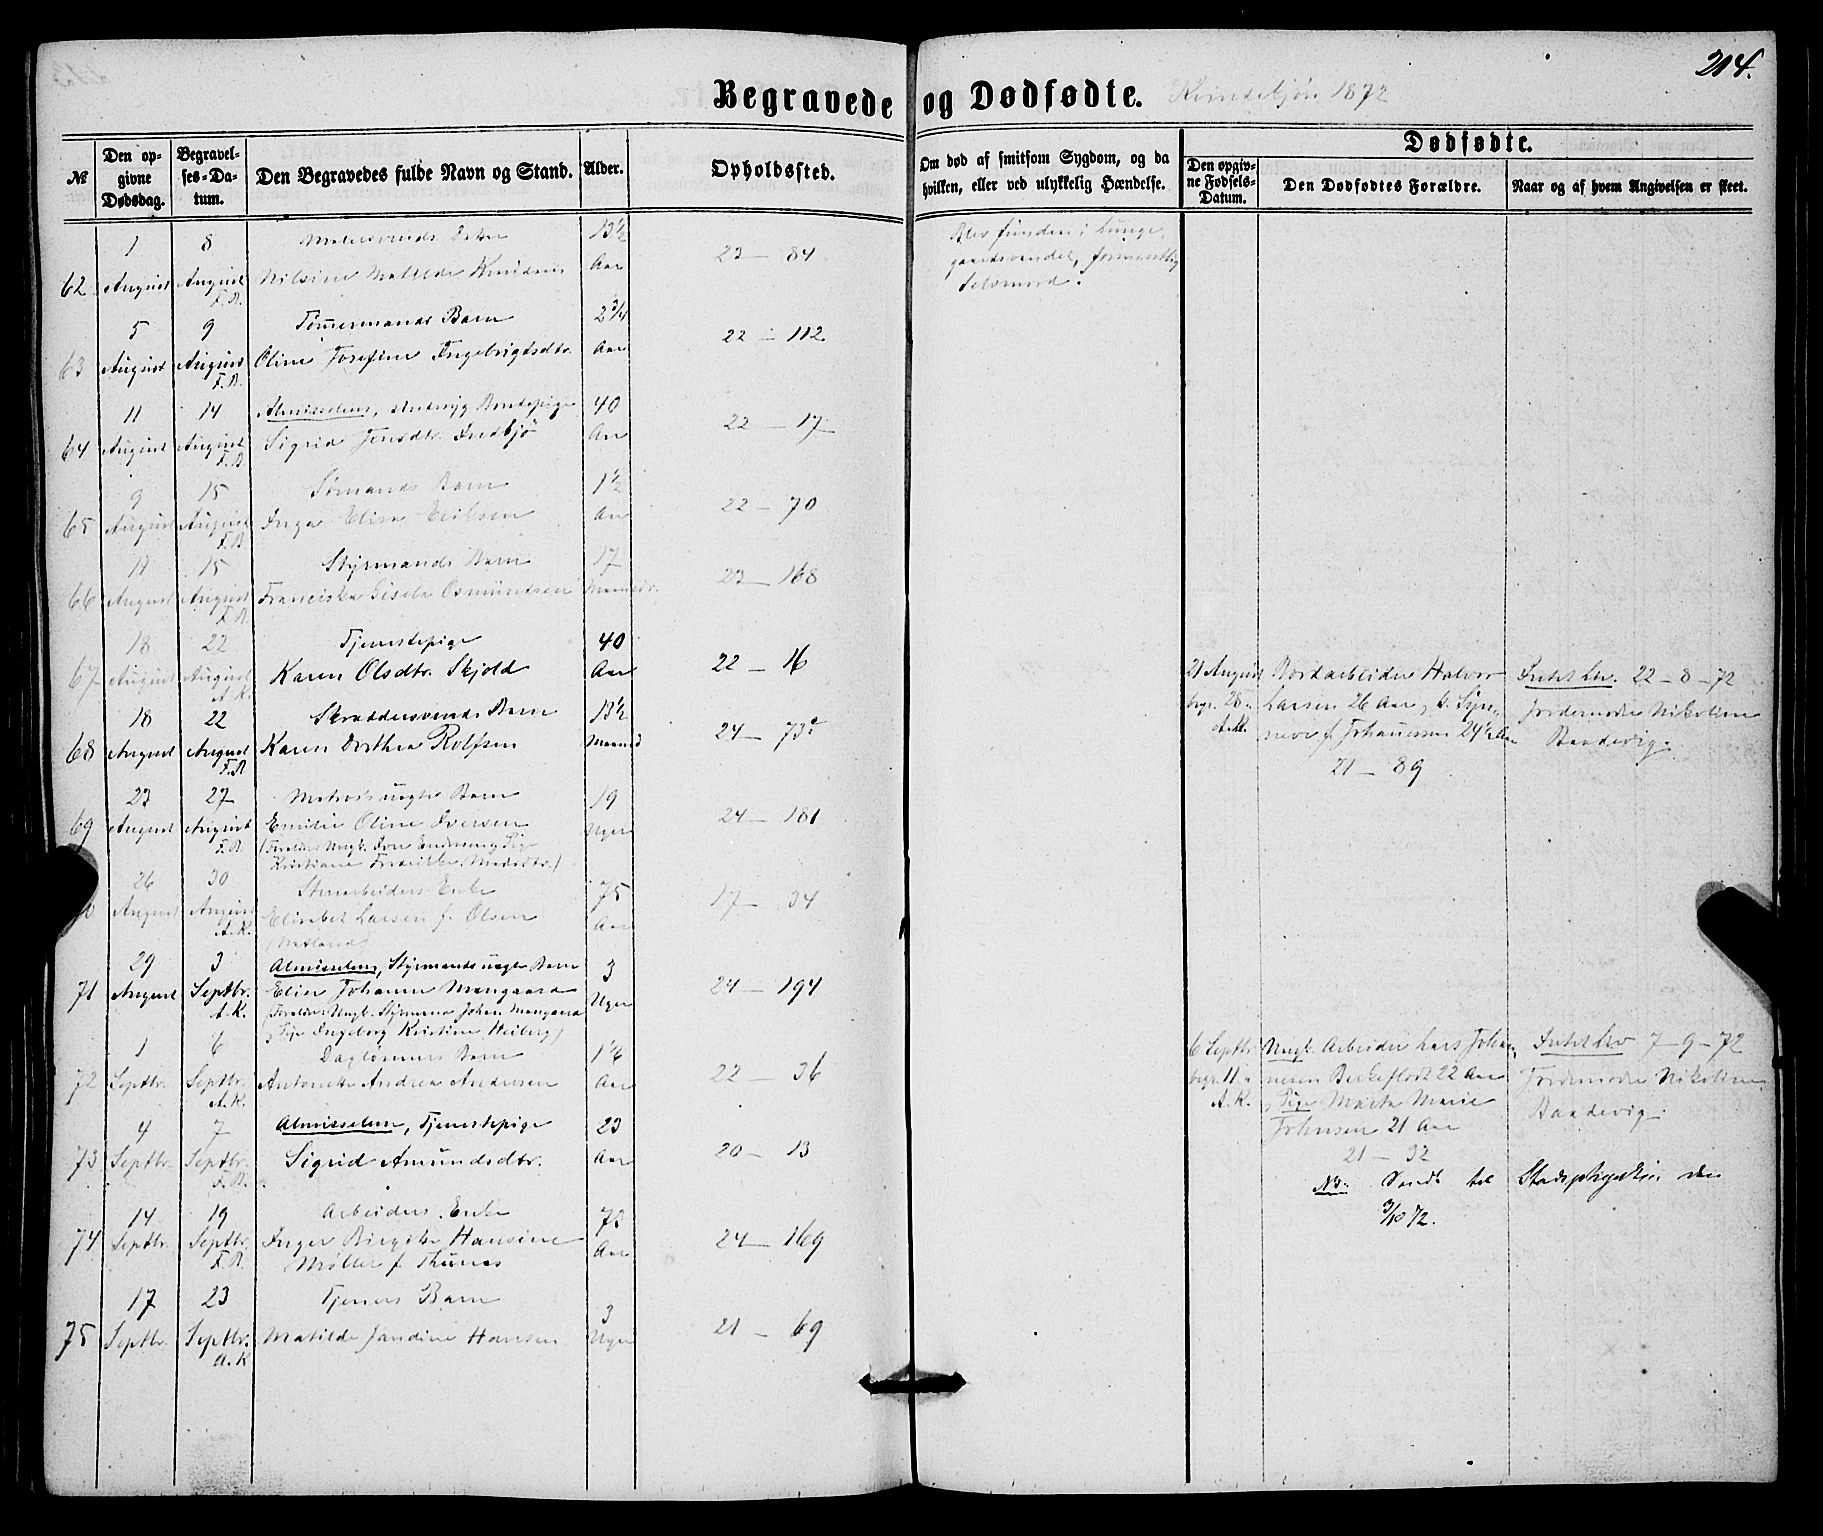 214.
Begravede og Dødfødte. Kvindekjøn 1872
№
Den opgivne Dødsdag.
Begravelses-Datum.
Den Begravedes fulde Navn og Stand.
Alder.
Opholdssted.
Om død af smitsom Sygdom, og da hvilken, eller ved ulykkelig Hændelse.
Dødfødte.
Den opgivne Fødsels-Datum.
Den Dødfødtes Forældre.
Naar og af hvem Angivelsen er skeet.
1 8 13½
62 August August Nilsine Matilde Knudsen Aar 23 — 84
F.B.
Blev funden i Lunge-
gaardsvandet, formentlig
Selvmord.
5 9 Tømmermands Barn 2¾
63 August August Oline Josefine Ingebrigtsdtr. Aar 22 — 112
F.B.
11 14 Almisselem, 40
64 August August Sigrid Jensdtr. Indbjø Aar 22 — 17
F.B.
9 15 Sømands Barn 1½
65 August August Inga Elisa Eriksen Aar 22 — 70
F.B.
11 15 Styrmands Barn 17
66 August August Franciska Gisela Osmundsen 23 — 168
F.B.
18 22 Tjenestepige 40
67 August August Karen Olsdtr. Skjold Aar 22 — 16
A.K.
18 22 Skræddersvends Barn 13½
68 August August Karen Dorthea Rolfsen Maaned 24 — 73
F.B.
21 August Halvor
begr. 28. Larsen 26 Aar
A.K. f. Johannesen 24½ Aar
21 — 89
Intet Lev. 22 – 8 – 72
Jordemoder Nikoline
Sandevig.
23 27 Matros uægte Barn 19
69 August August Emilie Oline Iversen Uger 24 — 181
F.B.
26 30 Enke 75
August August Elisabet Larsen f. Olsen Aar 17 — 34
A.K.
29 3 Almisselem, Styrmands uægte Barn 3
71 August Septbr. Johanne Mangaard Uger 24 — 194
A.K. Styrmand Johan Mangaard
Pige Ingeborg Kristine Heiberg)
1 6 Dagløners Barn
72 Septbr. Septbr. Antonette Andrea Andersen Aar 22 — 36
A.K.
6 Septbr. Ungk. Arbeider Lars Johan-
begr. 11 nesen 22 Aar
A.K. Pige Marta Marie
Johnsen 21 Aar
21 — 32
Intet Lev 7 – 9 – 72
Jordemoder Nikoline
Sandevig.
4 7 Almisselem, Tjenestepige 23
73 Septbr. Septbr. Sigrid Amundsdtr. Aar 20 — 13
F.B.
NB. Sendt til den
3/10 72.
14 19 Arbeiders Enke
74 Septbr. Septbr. Inger Birgitte Hansine Aar 24 — 169
F.B. Møller f.
17 23 Tjeners Barn 3
75 Septbr. Septbr. Matilde Jandine Hansen Uger 21 — 69
A.K